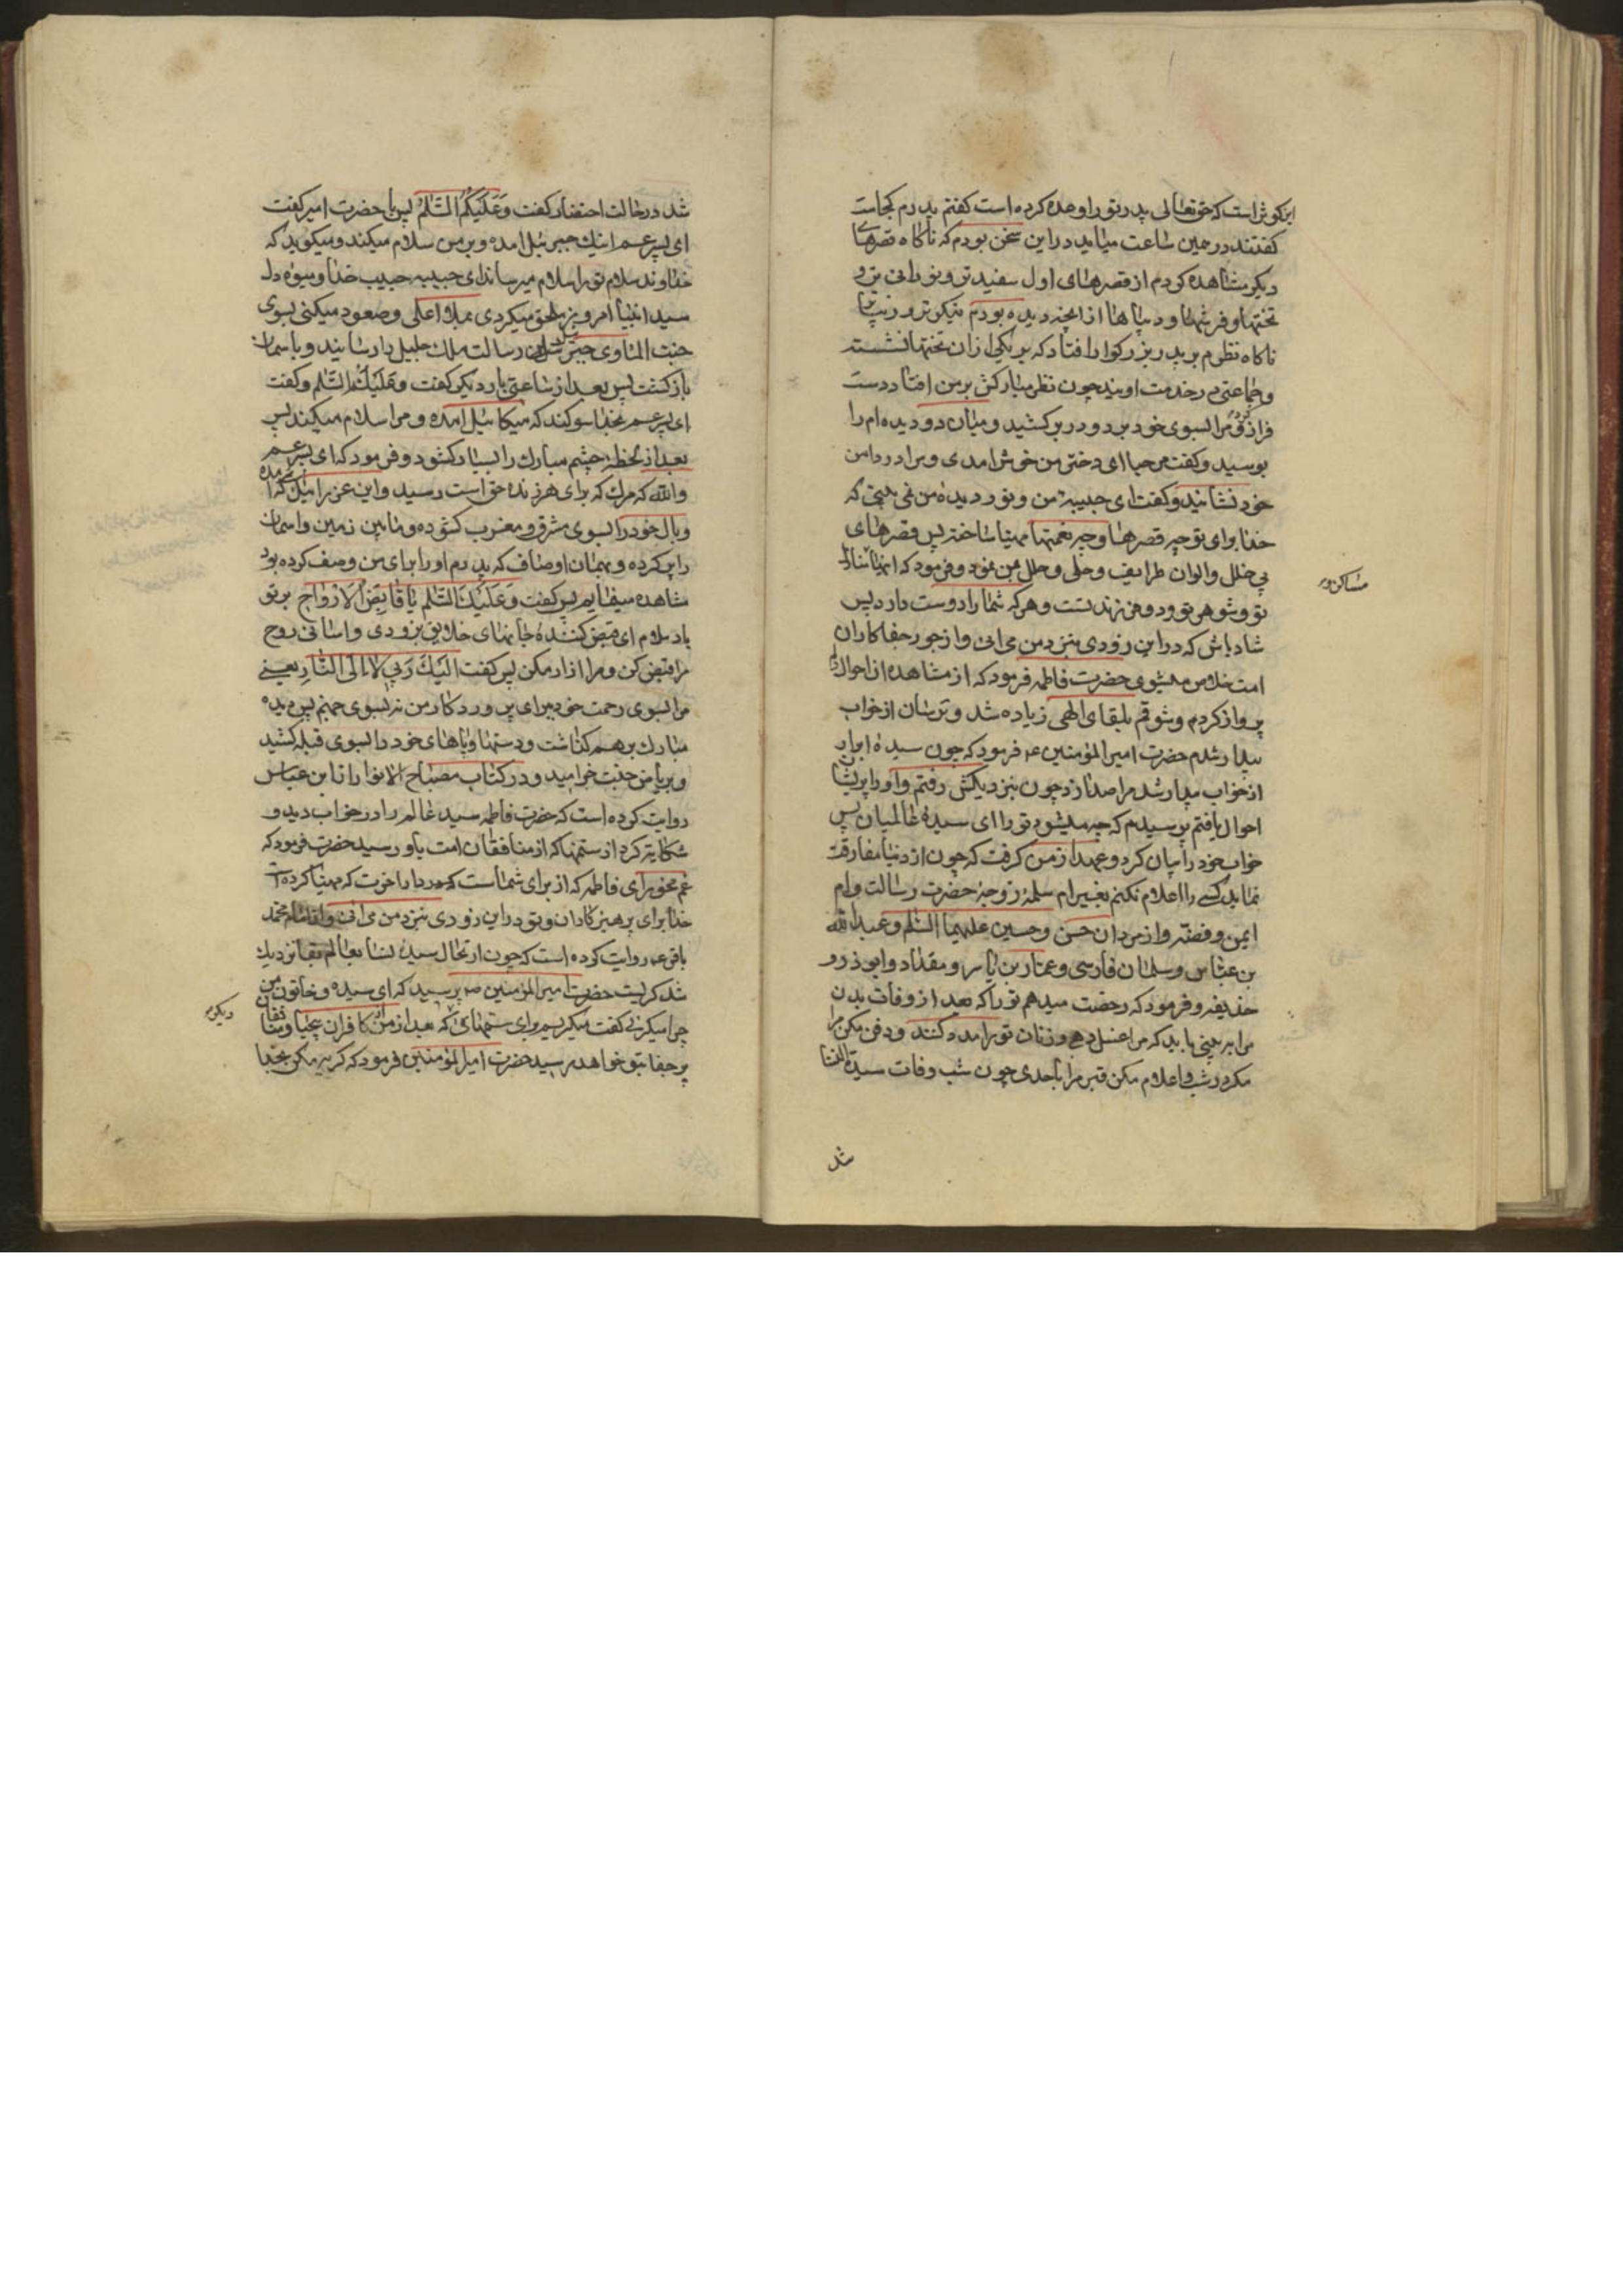 این کوثر است که حقتعالی پدر تو را وعده کرده است گفتم پدرم کجاست
گفتند در همین ساعت میاید در این سخن بودم که ناکاه قصرهای
دیکر مشاهده کردم از قصرهای اول سفیدتر و نورانی تر و
تختها و فرشها و دیباها از انچه دیده بودم نیکوتر و زیباتر
ناکاه نظرم بر پدر بزرکوارم افتاد که بر یکی از ان تختها نشسته
و جماعتی در خدمت اویند چون نظر مبارکش بر من افتاد دست
مرا بسوی خود برد و در بر کشید و میان دو دیده ام را
بوسید و کفت مرحبا ای دختر من خوش امدی و مرا در دامن
خود نشانید و کفت ای حبیبه من و نور دیده من نمی بینی که
خدا برای تو چه قصرها و چه نعمتها مهیا ساخته پس قصرهای
بی خلل و الوان طرایف و حلی و حلل بمن نمود و فرمود که اینها
مساکن
تو و شوهر تو و دو فرزند تست و هر که شما را دوست دارد پس
شاد باش که در این زودی بنزد من می ائی و از جور جفاکاران
امت خلاص میشوی حضرت فاطمه فرمود که از مشاهده این احوال دلم
پرواز کرد و شوقم بلقای الهی زیاده شد و ترسان از خواب
بیدار شدم حضرت امیرالمؤمنین ع فرمود که چون سیده ابرار
از خواب بیدار شد مرا صدا زد چون بنزدیکش رفتم و او را پریشان
احوال یافتم پرسیدم که چه میشود تو را ای سیدهٔ عالمیان پس
خواب خود را بیان کرد و عهد از من کرفت که چون از دنیا مفارقت
نماید کسی را اعلام نکنم بغیر ام سلمه زوجهٔ حضرت رسالت و ام
ایمن و فضه و از مردان حسن و حسین علیهما السلم و عبدالله
بن عباس و سلمان فارسی و عمار بن یاسر و مقداد و ابوذر و
حذیفه و فرمود که رخصت میدهم تو را که بعد از وفات بدن
مرا ببینی باید که مرا غسل دهی و زنان تو را مدد کنند و دفن مکن مرا
مکر در شب و اعلام مکن قبر مرا باحدی چون شب وفات سیدة النسا
شد
شد در حالت احتضار کفت وَعَلَیْکُمُ السَّلٰمُ پس با حضرت امیر کفت
ای پسر عم اینک جبرئیل امده و بر من سلام میکند و میکوید که
خداوند سلام تو را سلام میرساند ای حبیبه حبیب خدا و میوهٔ دل
سید انبیا امروز ملحق میکردی بملاء اعلی و صعود میکنی بسوی
جنت الماوی جبرئیل این رسالت ملک جلیل را رسانید و باسمان
بازکشت پس بعد از ساعتی بار دیکر کفت وَعَلَیْکُمُ السَّلٰم و کفت
ای پسر عم بخدا سوکند که میکائیل امده و مرا سلام میکند پس
بعد از لحظهٔ چشم مبارک را بسیار کشود و فرمود که ای پسر عم
والله که مرک که برای هر زنده حق است رسید و این عزرائیل که امده
و بال خود را بسوی مشرق و مغرب کشوده و مابین زمین و اسمان
را پر کرده و بهمان اوصاف که پدرم او را برای من وصف کرده بود
مشاهده مینمایم پس کفت وَعَلَیْکَ السَّلٰم یٰا قٰابِضَ الْاَرْوٰاحِ بر تو
باد سلام ای قبض کنندهٔ جانهای خلایق بزودی و اسانی روح
مرا قبض کن و مرا ازار مکن پس کفت اِلَیْکَ رَبّی لٰا اِلَی النّٰارِ یعنی
مرا بسوی رحمت خود ببر ای پروردکار من نه بسوی جهنم پس دیده
مبارک بر هم کذاشت و دستها و پاهای خود را بسوی قبله کشید
و بریاض جنت خرامید و در کتاب مصباح الانوار از ابن عباس
روایت کرده است که حضرت فاطمه سید عالم را در خواب دید و
شکایت کرد از ستمها که از منافقان امت باو رسید حضرت فرمود که
غم مخور ای فاطمه که از برای شماست در دار اخرت که مهیا کرده است
خدا برای پرهیزکاران و تو در این زودی بنزد من می ائی و از امام محمد
باقر ع روایت کرده است که چون ارتحال سیدهٔ نسا بعالم بقا نزدیک
شد کریست حضرت امیرالمؤمنین ص پرسید که ای سیده و خاتون من
چرا میکریی کفت میکریم برای ستمهای که بعد از من از کافران بیحیا و منافقان
دیکر
پر جفا بتو خواهد رسید حضرت امیرالمؤمنین فرمود که کریه مکن بخدا